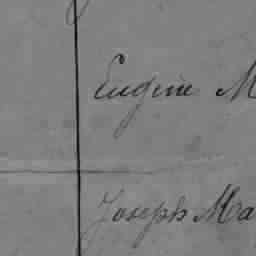 Eugene M
Joseph Ma